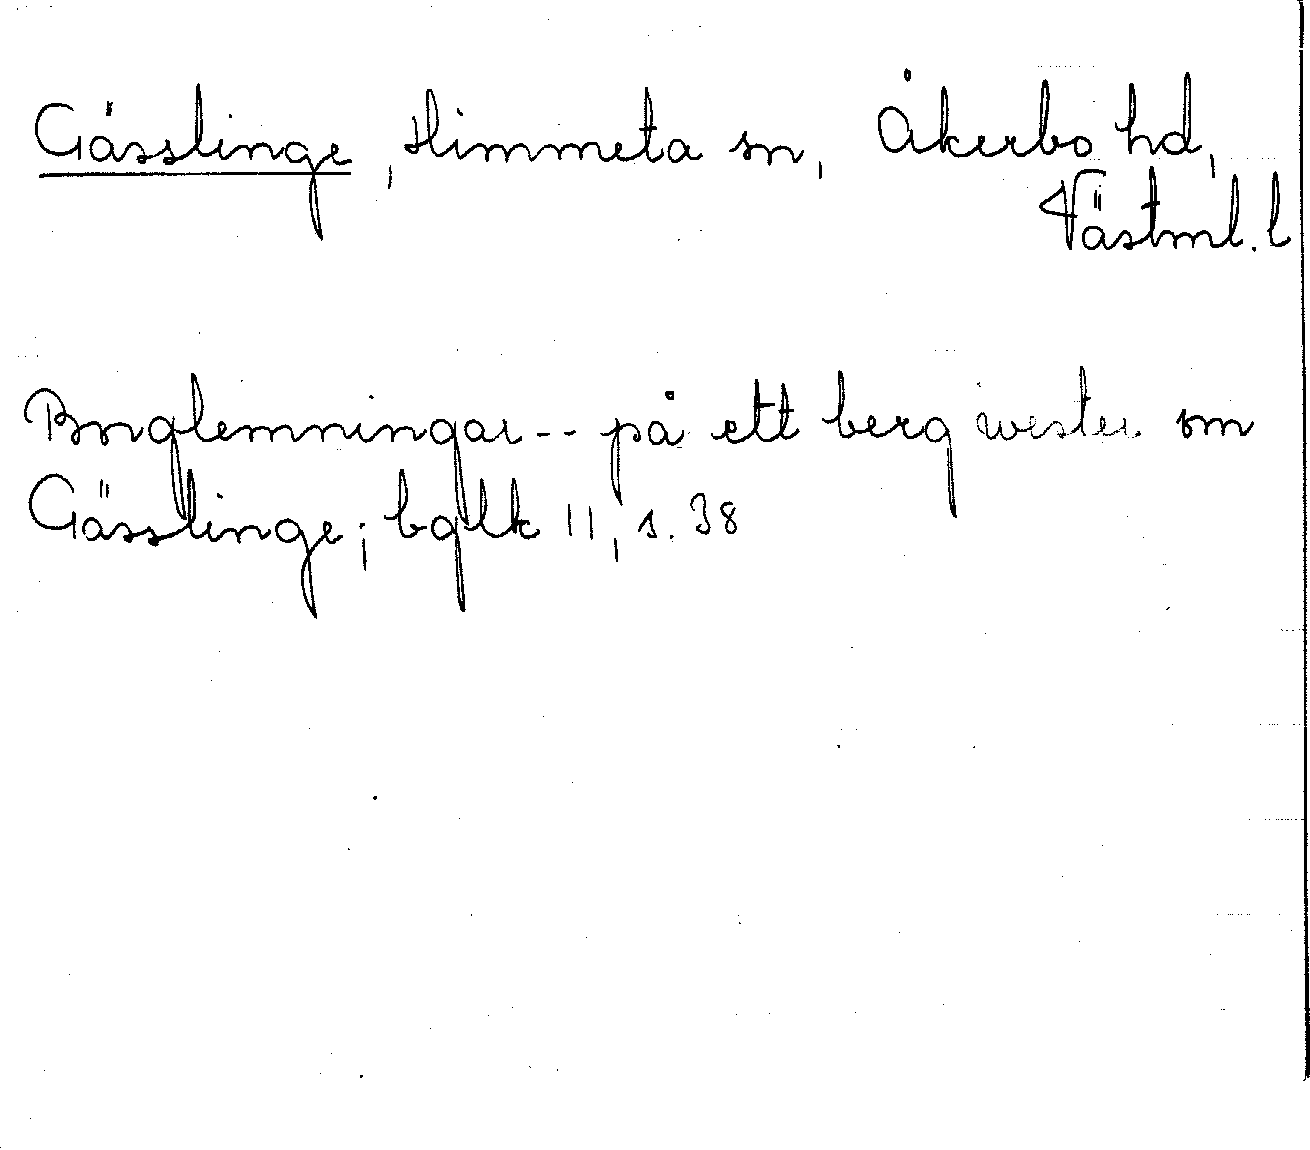 Gässlinge, Himmeta sn, Åkerbo hd,
Västml. l
Borglemningar -- på ett berg wester om
Gässlinge; bglk 11, s. 38